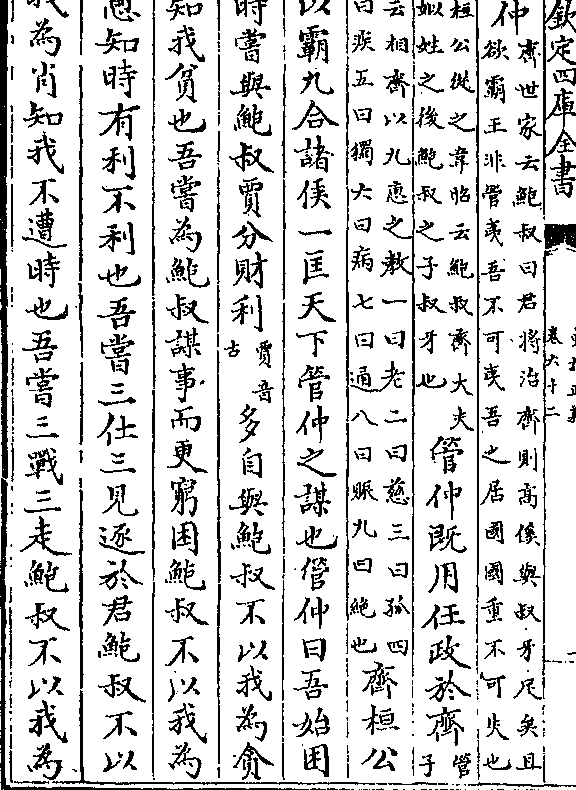 欽定四庫全書
卷六十二
仲
齊世家云鮑叔曰君將治齊則高傒與叔牙足矣且
欲霸王非管夷吾不可夷吾之居國國重不可失也
桓公從之韋昭云鮑叔齊大夫
姒姓之後鮑叔之子叔牙也
管仲既用任政於齊
管
子
云相齊以九惠之教一曰老二曰慈三曰孤四
曰疾五曰獨六曰病七曰通八曰賑九曰絶也
齊桓公
以霸九合諸侯一匡天下管仲之謀也管仲曰吾始困
時嘗與鮑叔賈分財利
賈音
古
多自與鮑叔不以我為貪
知我貧也吾嘗為鮑叔謀事而更窮困鮑叔不以我為
愚知時有利不利也吾嘗三仕三見逐於君鮑叔不以
我為肖知我不遭時也吾嘗三戰三走鮑叔不以我為